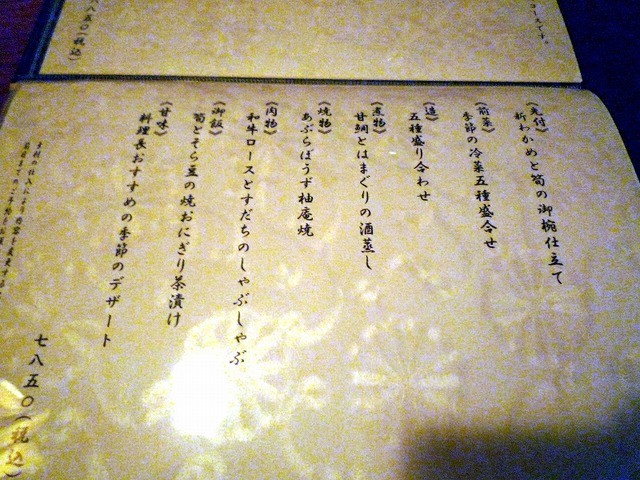 コースです。
八五〇(税込)
《先付》
新わかめと筍の御椀仕立て
《前菜》
季節の冷菜五種盛合せ
《造》
五種盛り合わせ
《煮物》
甘鯛とはまぐりの酒蒸し
《焼物》
あぶらぼうず柚庵焼
《肉物》
和牛ロースとすだちのしゃぶしゃぶ
《御飯》
筍とそら豆の焼おにぎり茶漬け
《甘味》
料理長おすすめの季節のデザート
七八五〇(税込)